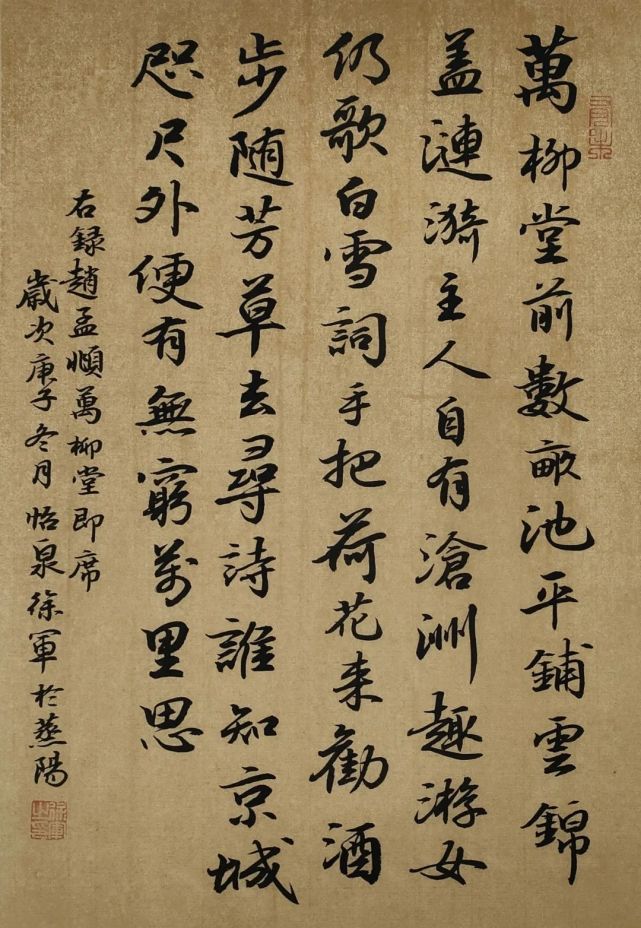 萬柳堂前數畝池平鋪雲錦
盖漣漪主人自有滄洲趣游女
仍歌白雪詞手把荷花来勸酒
步随芳草去尋詩誰知京城
咫尺外便有無窮萬里思
右録趙孟頫萬柳堂即席
歲次庚子冬月怡泉徐軍於燕陽
徐軍之印